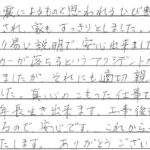 震によるものと思われるひび割
され、家もすっきりとしました。
り易い説明で、安心出来まし
カーが落ちるというアクシデント
ましたが、それにも適切
した。真心のこもった仕事で
年長生き出来ます。工事後
るので安心です。これから
たします。ありがとうござい